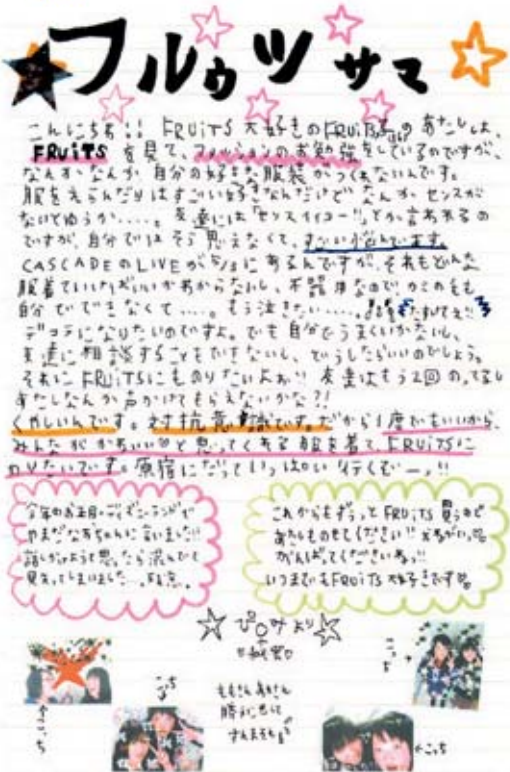 フルゥツ サマ
こんにちわ!! FRUiTS 大好きのFRUiTS のあたしは、
FRUiTS を見て、ファッションのお勉強をしているのですが、
なんかなんか 自分の好きな服装がつくれないんです。
服をえらんだりはすごい好きなんだけど なんか センスが
ないとゆうか....。友達には「センスイイヨー!!」とか言われるの
ですが、自分ではそう思えなくて、すごい悩んでます。
CASCADEのLIVEが5/3にあるんですが、それもどんな
服着ていいかわからないし、不器用なので、かみのもも
自分でできなくて....。もう泣きたい....。たすけてぇ!!
デコラになりたいのですよ。でも自分でうまくいかないし、
友達に相談することもできないし、どうしたらいいのでしょう。
それに FRUiTSにものりたいよぉ!! 友達はもう2回のってるし
あたしなんか声かけてもらえないかな?!
くやしいんです。対抗意識です。だから1度でもいいから、
みんながかわいい♡と思ってくれる服を着て、FRUiTSに
のりたいです。原宿にだっていっぱい行くぞーっ!!
今年のお正月、ディズニーランドで
やまだななちゃんに会いました!!
話しかけようと思ったら混んでて
見失ってしまいました...
これからもずぅっと FRUiTS 買うので
あたしものせてください!!
がんばってくださいねっ!!
いつまでもFRUiTS 大好きです
より
こっち
こっち
こっち
こっち